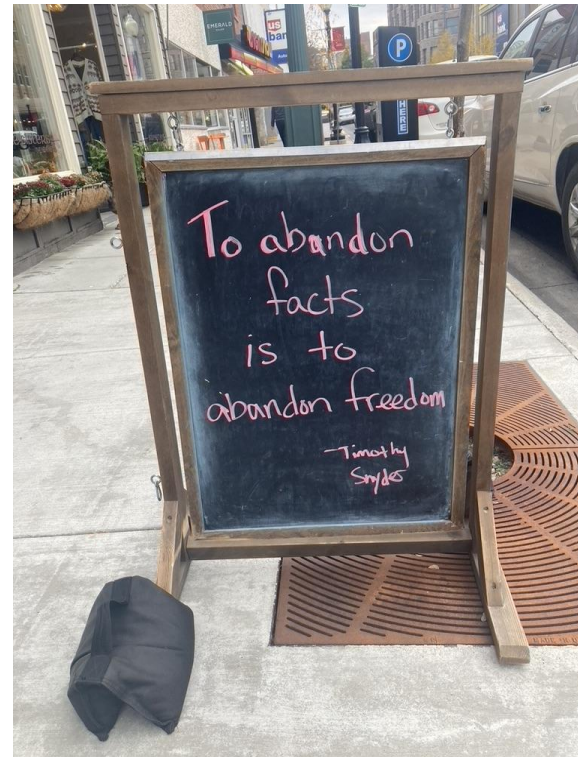 EMERALD
us
bank
P
HERE
To abandon
facts
is to
abandon freedom
-Timothy
Snyder